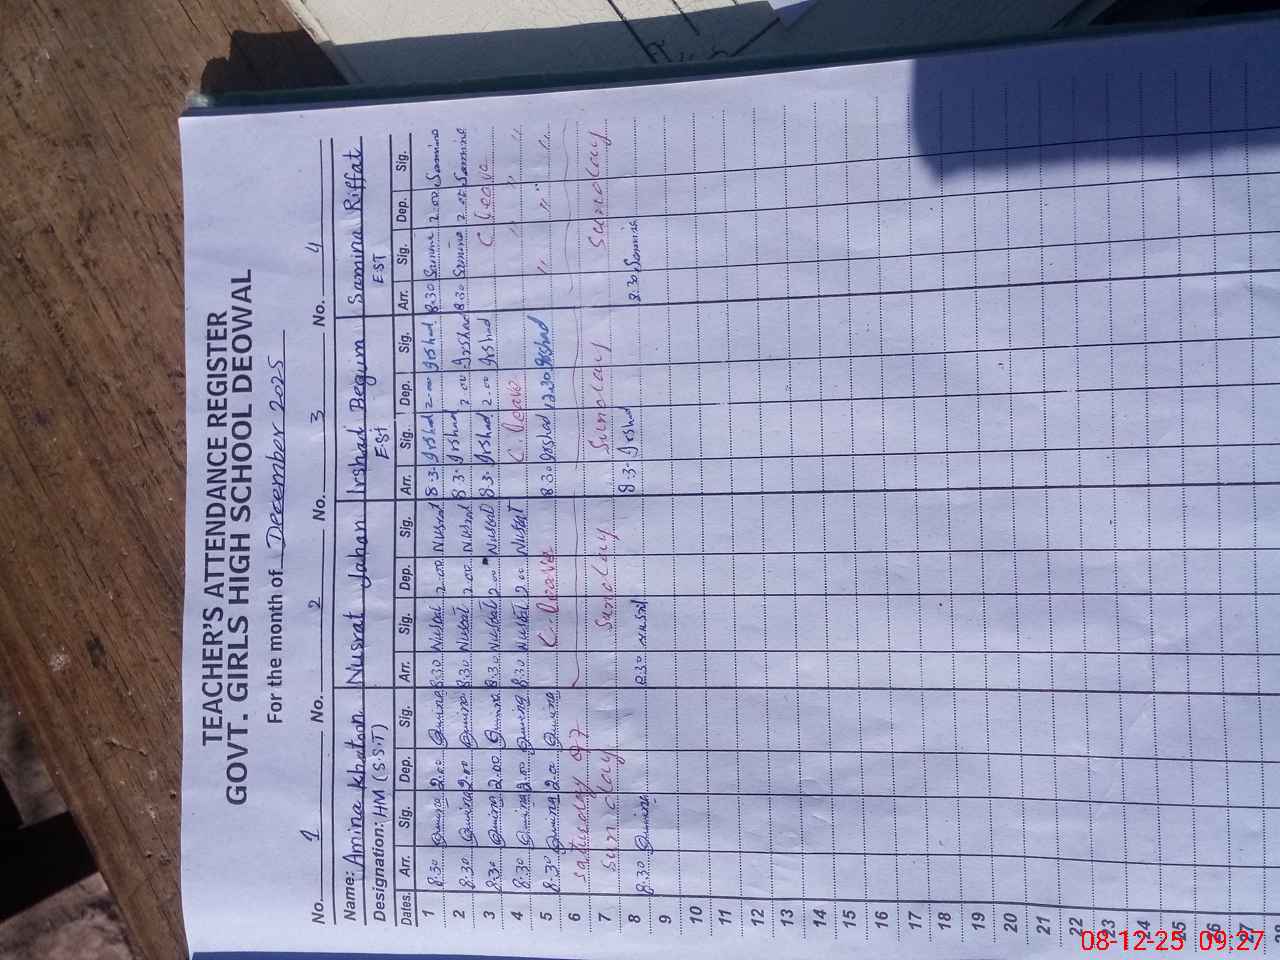 TEACHER'S ATTENDANCE REGISTER
GOVT. GIRLS HIGH SCHOOL DEOWAL
For the month of December 2025
No. 1 No. 2 No. 3 No. 4
Name: Amina Khatoon Nusrat Jahan Irshad Begum Samina Riffat
Designation: HM (S.S.T) EST EST
Dates. Arr. Sig. Dep. Sig. Arr. Sig. Dep. Sig. Arr. Sig. Dep. Sig. Arr. Sig. Dep. Sig.
1 8:30 Amina 2.00 Amina 8:30 Nusrat 2.00 Nusrat 8.30 Irshad 2.00 Irshad 8.30 Samina 2.00 Samina
2 8.30 Amina 2.00 Amina 8.30 Nusrat 2.00 Nusrat 8.30 Irshad 2.00 Irshad 8.30 Samina 2.00 Samina
3 8:30 Amina 2.00 Amina 8.30 Nusrat 2.00 Nusrat 8.30 Irshad 2.00 Irshad C leave
4 8:30 Amina 2.00 Amina 8:30 Nusrat 2.00 Nusrat C. leave " " "
5 8:30 Amina 2.00 Amina C. leave 8.30 Irshad 12.30 Irshad " " " "
6 Saturday
7 Sunday Sunday Sunday Sunday
8 8:30 Amina 8.30 Nusrat 8.30 Irshad 8.30 Samina
9
10
11
12
13
14
15
16
17
18
19
20
21
22
23
24
25
26
27
28
08-12-25 09:27